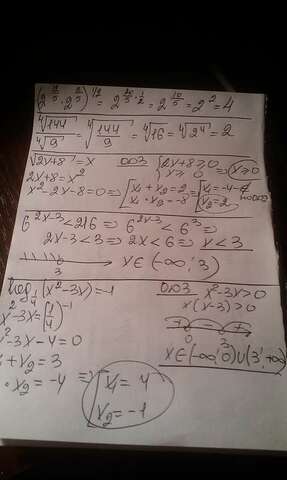 (2^{2/5} · 2^{2/5})^{1/2} = 2^{20/5 · 1/2} = 2^{10/5} = 2^2 = 4
∜144 / ∜9 = ∜(144/9) = ∜16 = ∜2^4 = 2
√(2x+8) = x ОДЗ { 2x+8≥0 x≥0 ⇒ x≥0
2x+8=x²
x²-2x-8=0 ⇒ [ x₁+x₂=2 x₁·x₂=-8 [ x₁=-4 x₂=2
6^{2x-3}<216 ⇒ 6^{2x-3}<6³ ⇒
2x-3<3 ⇒ 2x<6 ⇒ x<3
3 x∈(-∞;3)
log_{1/4}(x²-3x)=-1 ОДЗ x²-3x>0
x²-3x=(1/4)^{-1} x(x-3)>0
x²-3x-4=0 + - +
+x₂=3 0 3
·x₂=-4 ⇒ [ x₁=4 x₂=-1 x∈(-∞;0)∪(3;+∞)